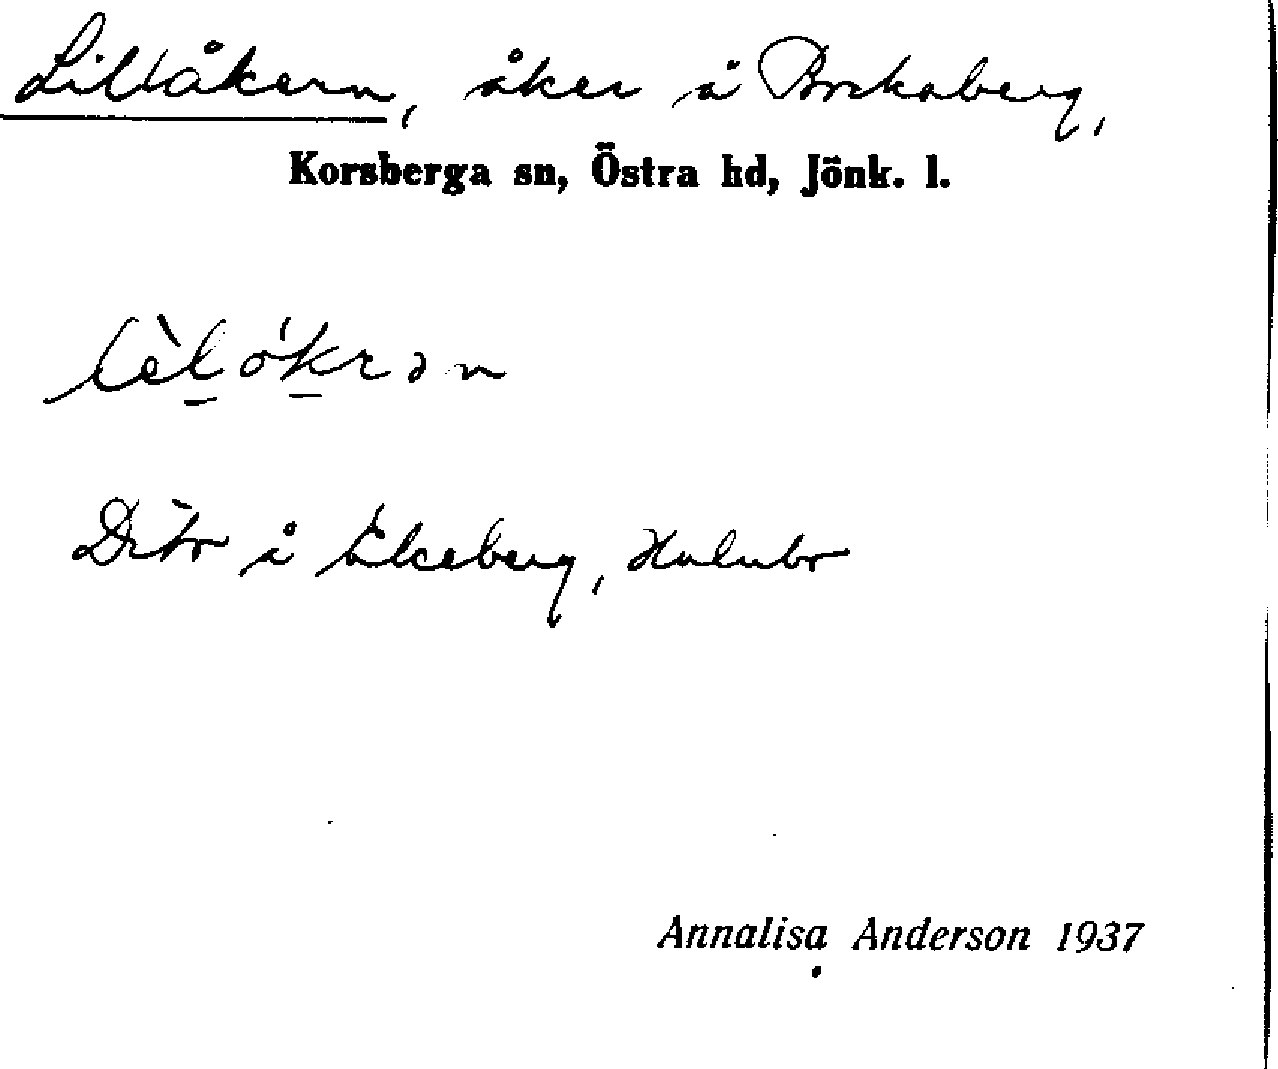 Lillåkern, åker å Bockaberg,
Korsberga sn, Östra hd, Jönk. l.
lèlókrən
Dito å Ekeberg, Hulubo
Annalisa Anderson 1937